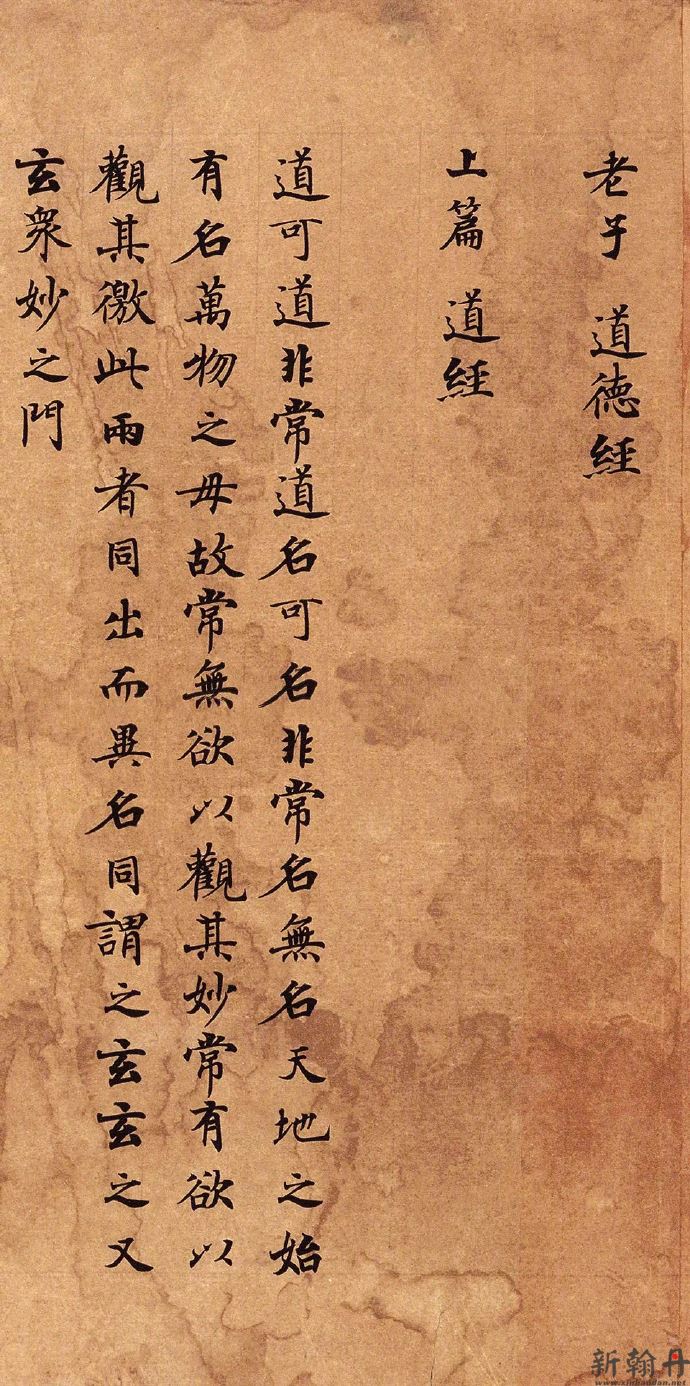 老子 道德經
上篇 道經
道可道非常道名可名非常名無名天地之始
有名萬物之母故常無欲以觀其妙常有欲以
觀其徼此兩者同出而異名同謂之玄玄之又
玄衆妙之門
新翰丹
www.xinhandan.net